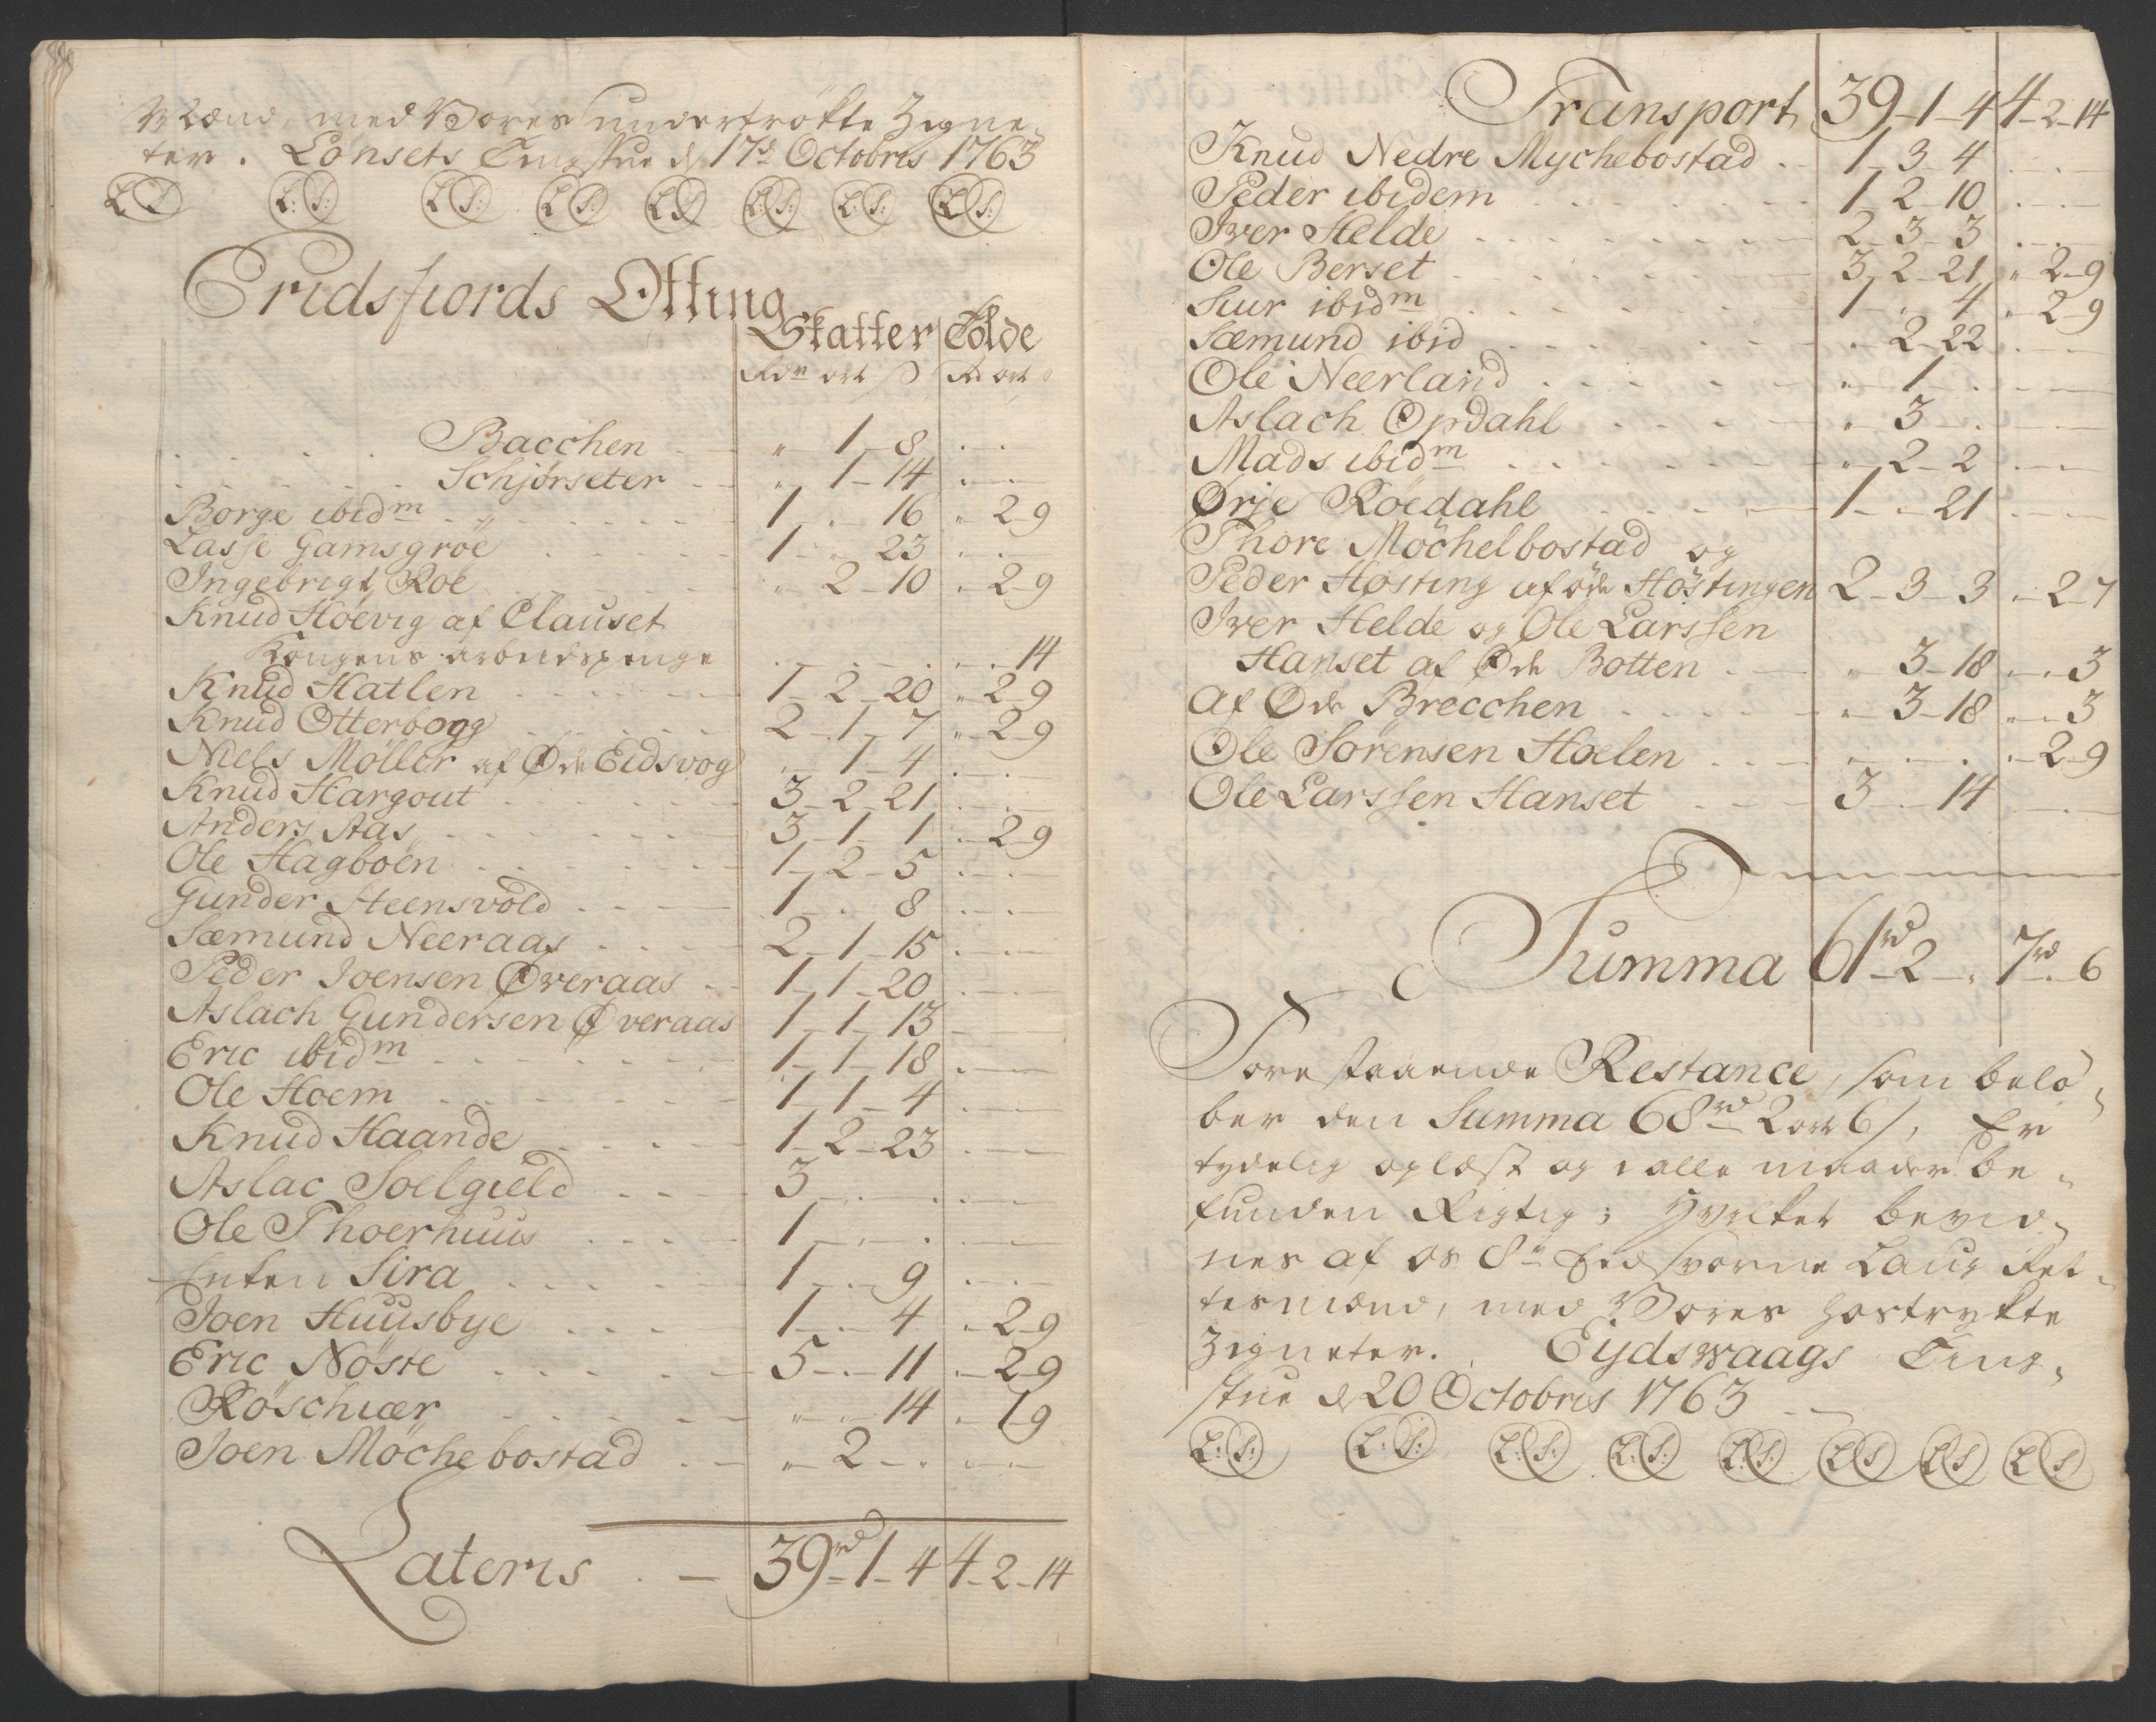 Mænd, med Vores undertrökte Zigne-
ter. Lønsets Tingstue d 17de Octobris 1763
L.S. L:S: L:S: L:S: L.S. L:S: L:S: L:S:
Eridsfiords Otting
Skatter Tolde
Rdr ort ß Rd ort
Bacchen " 1 - 8
Schjørseter " 1 - 14
Borge ibidm 1 - " - 16 " 2 - 9
Lasse Gamsgröe 1 - " - 23
Ingebrigt Roe " 2 - 10 " 2 - 9
Knud Høevig af Clauset
Kongens arbeidspenge 14
Knud Hatlen 1 - 2 - 20 " 2 - 9
Knud Otterbogg 2 - 1 - 7 " 2 - 9
Niels Møller af Øde Eidsvog " 1 - 4
Knud Hargout 3 - 2 - 21
Anders Aas 3 - 1 - 1 - 2 - 9
Ole Hagboen 1 - 2 - 5
Gunder Steensvold 1 - . 8
Sæmund Neeraas 2 - 1 - 15
Peder Joensen Øveraas 1 - 1 - 20
Aslach Gundersen Øveraas 1 - 1 - 13
Eric ibidm 1 - 1 - 18
Ole Hoem 1 - 1 - 4
Knud Haande 1 - 2 - 23
Aslac Soelgield 3
Ole Thoerhuus 1
Enken Sira 1 - . - 9
Joen Huusbye 1 - . - 4 - 2 - 9
Eric Nöste 5 - . - 11 - 2 - 9
Röschiær " - 14 - 1 9
Joen Möchebostad " 2
Lateris - 39rd 1 - 4 4 - 2 - 14
Transport 39 - 1 - 4 4 - 2 - 14
Knud Nedre Mychebostad 1 - 3 - 4
Peder ibidem 1 - 2 - 10
Iver Helde 2 - 3 - 3
Ole Berset 3 - 2 - 21 " 2 - 9
Siur ibidm 1 - " 4 " 2 - 9
Sæmund ibid " 2 - 22
Ole Neerland " 1
Aslach Opdahl " 3
Mads ibidm " 2 - 2
Ørje Röedahl 1 - . - 21
Thore Möchelbostad og
Peder Høsting af øde Höstingen 2 - 3 - 3 - 2 - 7
Iver Helde og Ole Larssen
Hanset af Øde Botten " 3 - 18 - . 3
Af Øde Brecchen " 3 - 18 " . 3
Ole Sørensen Hoelen - 2 - 9
Ole Larssen Hanset 3 . 14
Summa 61rd 2 - . 7rd . 6
Forestaaende Restance, som belø-
ber den Summa 68rd 2 ort 6 ß, Er
tydelig oplæst og i alle maader be-
funden Rigtig; Hvilket bevid-
nes af os 8te Eedsvorne Laug Ret-
tesmænd, med Vores hostrykte
Zigneter. Eydswaags Ting-
stue d 20 Octobris 1763
L:S: L:S: L:S: L:S: L:S: L.S L.S L S